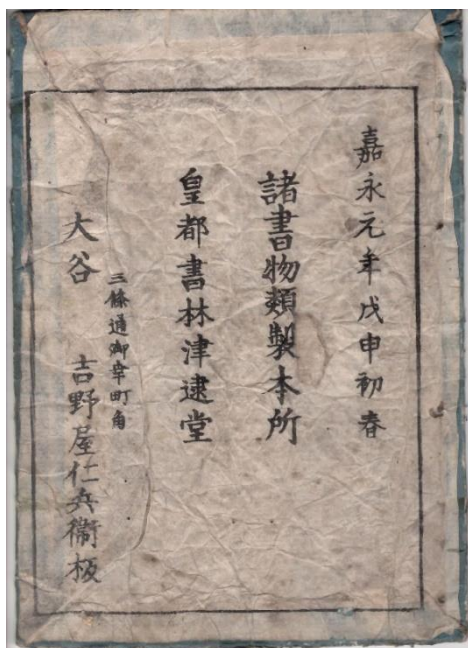 嘉永元年戊申初春
諸書物類製本所
皇都書林津逮堂
三條通御幸町角
大谷 吉野屋仁兵衞板